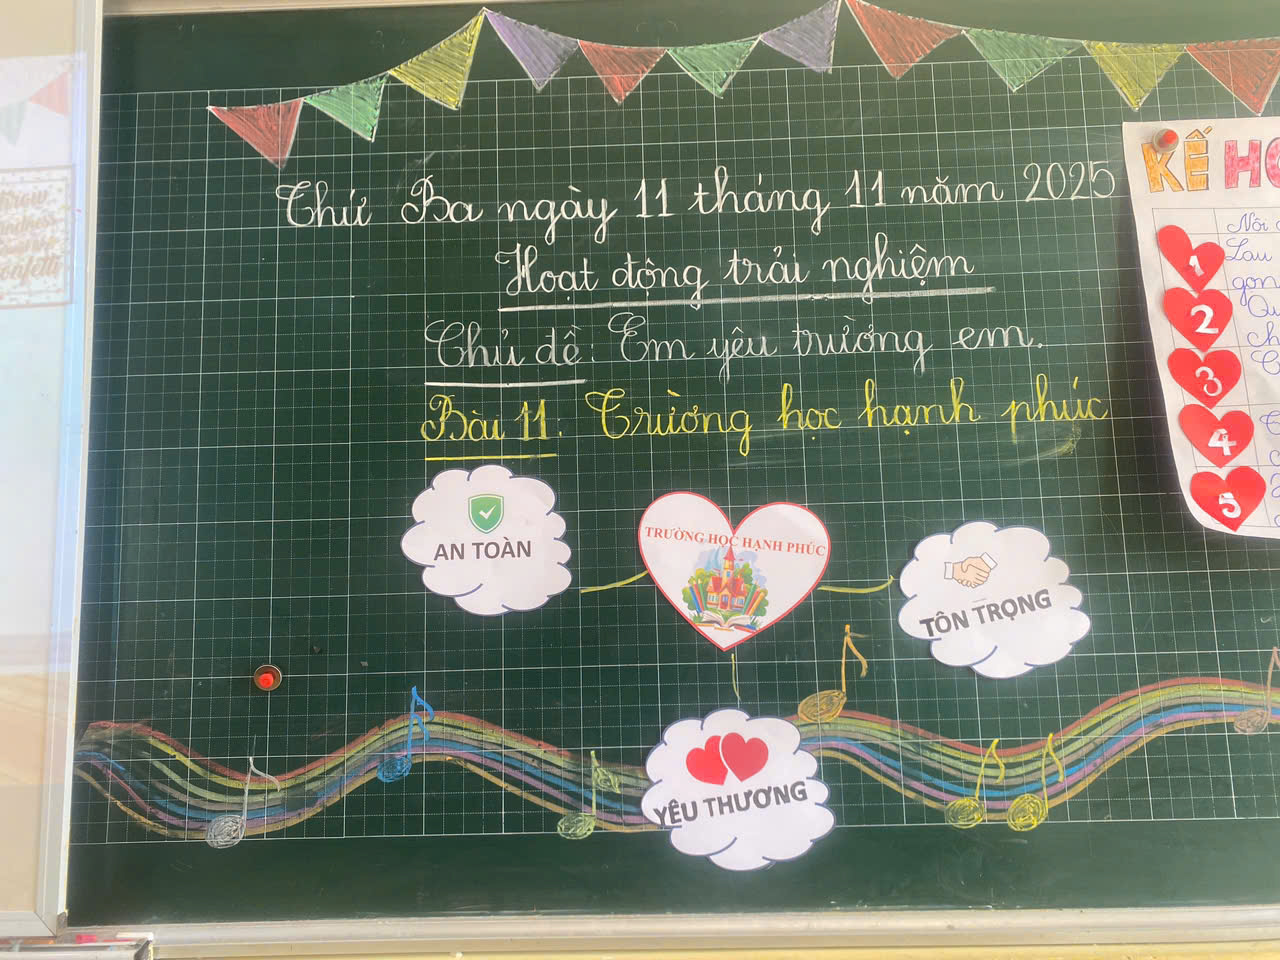 Thứ Ba ngày 11 tháng 11 năm 2025
Hoạt động trải nghiệm
Chủ đề: Em yêu trường em.
Bài 11. Trường học hạnh phúc
AN TOÀN
TRƯỜNG HỌC HẠNH PHÚC
TÔN TRỌNG
YÊU THƯƠNG
KẾ
1
Lau
2
3
4
5